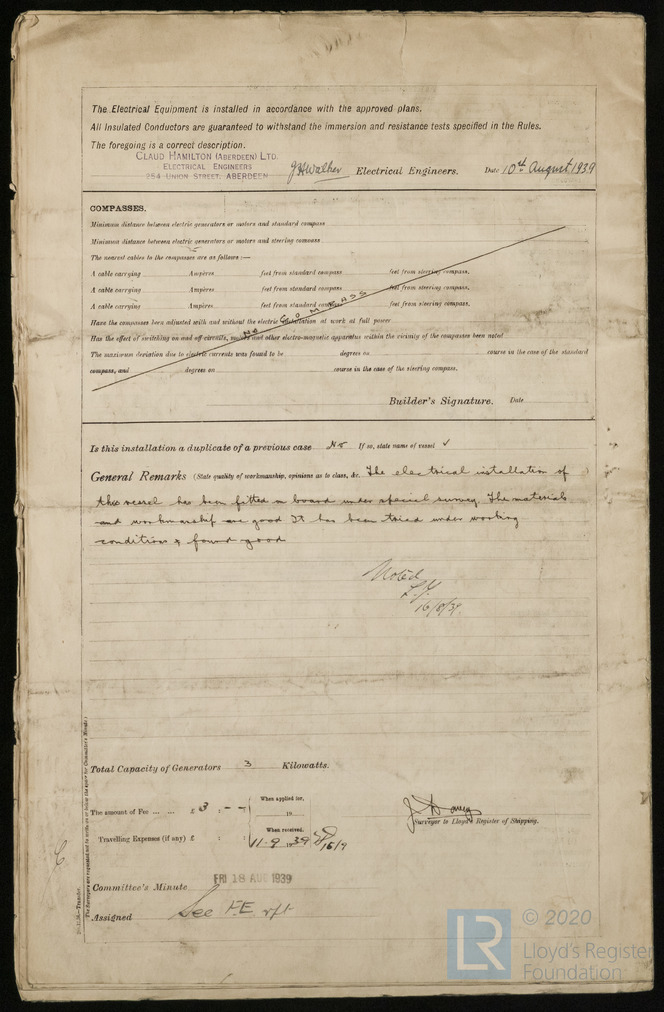 The Electrical Equipment is installed in accordance with the approved plans.
All Insulated Conductors are guaranteed to withstand the immersion and resistance tests specified in the Rules.
The foregoing is a correct description.
CLAUD HAMILTON (ABERDEEN) LTD.
ELECTRICAL ENGINEERS
254 UNION STREET, ABERDEEN
J H Walker Electrical Engineers. Date 10th August 1939
COMPASSES.
Minimum distance between electric generators or motors and standard compass
Minimum distance between electric generators or motors and steering compass
The nearest cables to the compasses are as follows:—
A cable carrying Ampères feet from standard compass feet from steering compass.
A cable carrying Ampères feet from standard compass feet from steering compass.
A cable carrying Ampères feet from standard compass feet from steering compass.
NO COMPASS
Have the compasses been adjusted with and without the electric installation at work at full power
Has the effect of switching on and off circuits, motors and other electro-magnetic apparatus within the vicinity of the compasses been noted
The maximum deviation due to electric currents was found to be degrees on course in the case of the standard
compass, and degrees on course in the case of the steering compass.
Builder's Signature. Date
Is this installation a duplicate of a previous case No If so, state name of vessel ✓
General Remarks (State quality of workmanship, opinions as to class, &c. The electrical installation of
this vessel has been fitted on board under special survey. The materials
and workmanship are good It has been tried under working
conditions & found good
Noted
16/8/39.
Total Capacity of Generators 3 Kilowatts.
The amount of Fee ... ... £ 3 : - -
When applied for,
19
Travelling Expenses (if any) £ : :
When received.
11-9 1939 16/9
Surveyor to Lloyd's Register of Shipping.
Committee's Minute FRI 18 AUG 1939
Assigned See F.E. rpt
© 2020
LR
Lloyd's Register
Foundation